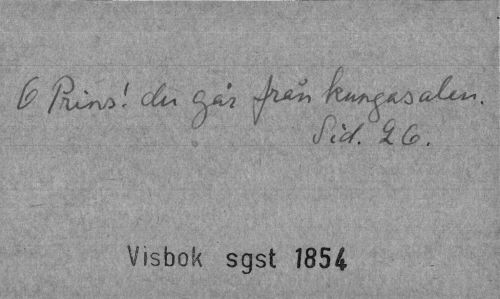 O Prins! du går från kungasalen.
Sid. 26.
Visbok sgst 1854